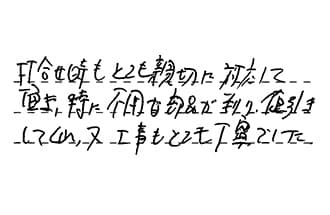 打合せ時もとても親切に対応して
頂き、特に不用な部品が判り、値引き
してくれ、又工事もとても丁寧でした